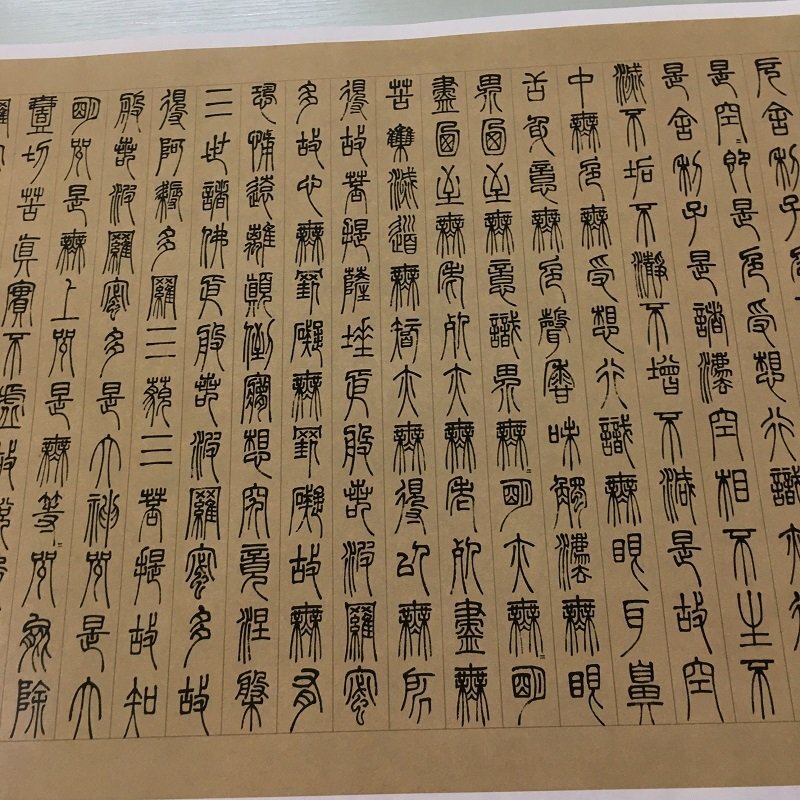 厄舍利子色
是空=即是色受想行識亦復
是舍利子是諸法空相不生不
滅不垢不淨不增不減是故空
中無色無受想行識無眼耳鼻
舌身意無色聲香味觸法無眼
界迺至無意識界無=明亦無=明
盡迺至無老死亦無老死盡無
苦集滅道無智亦無得以無所
得故菩提薩埵依般若波羅蜜
多故心無罣礙無罣礙故無有
恐怖遠離顛倒夢想究竟涅槃
三世諸佛依般若波羅蜜多故
得阿耨多羅三藐三菩提故知
般若波羅蜜多是大神咒是大
明咒是無上咒是無等=咒能除
壹切苦真實不虛故說
羅